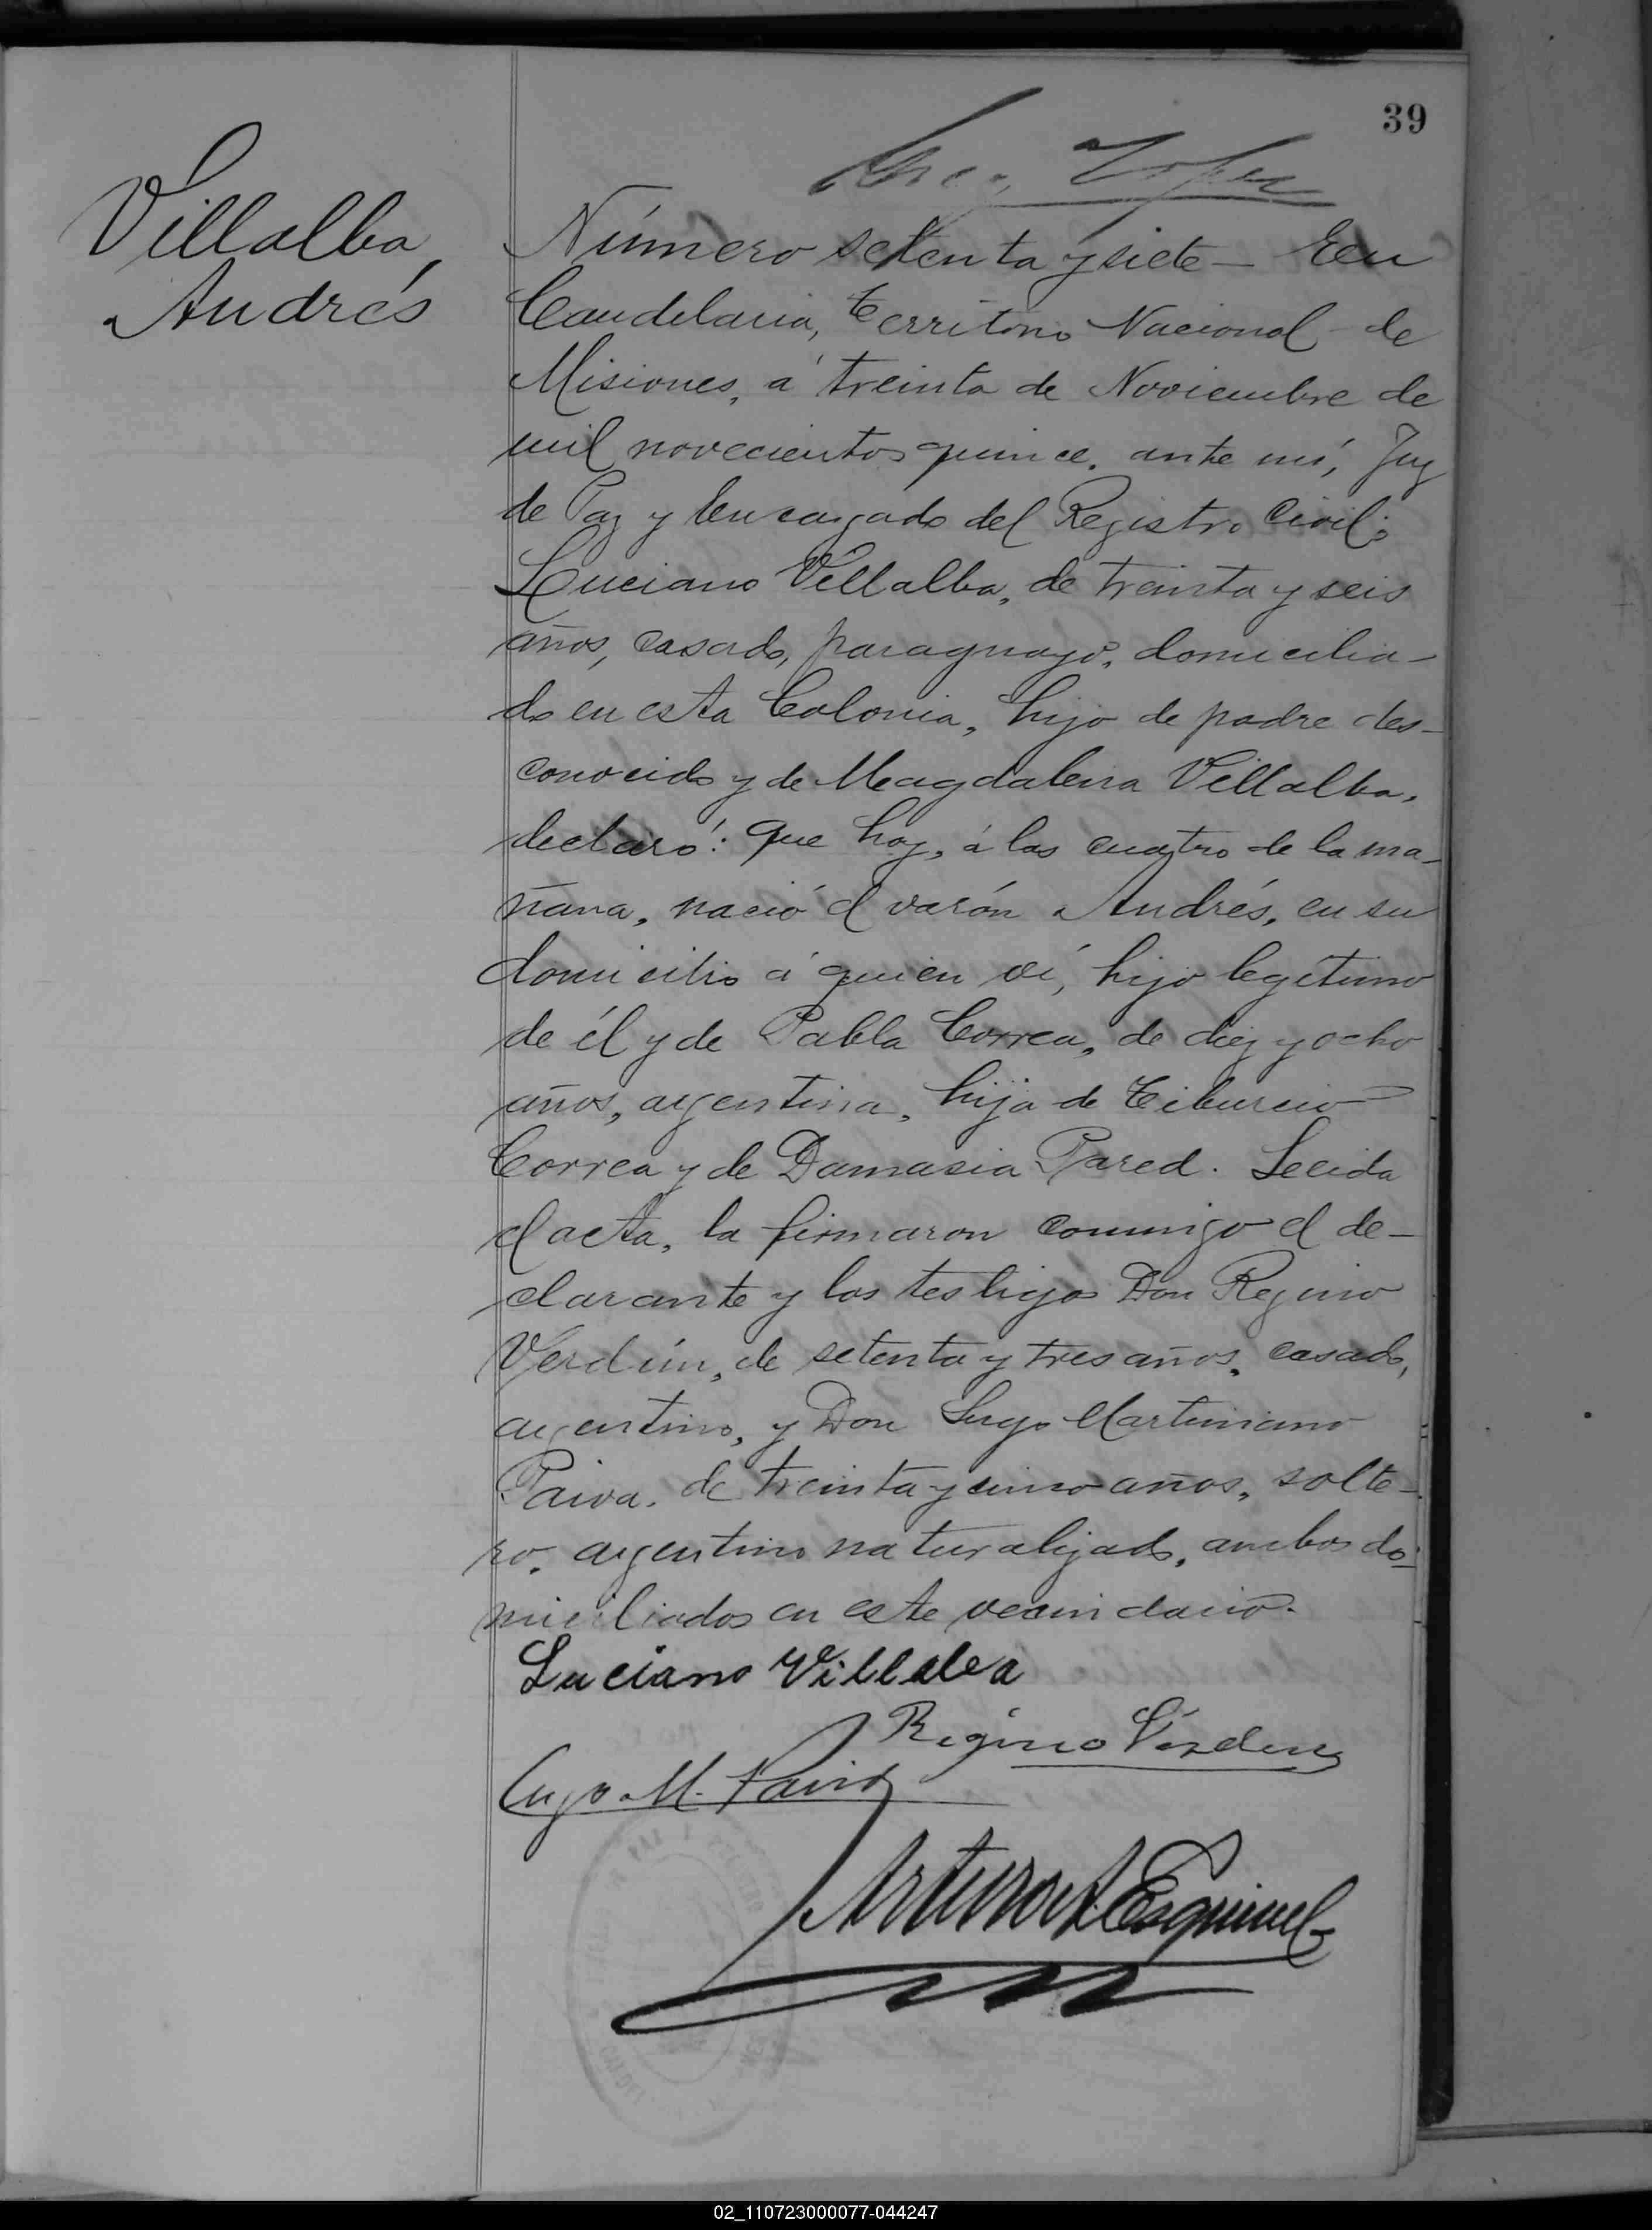 39
Villalba,
Andrés
Número setenta y siete - En
Candelaria, Territorio Nacional de
Misiones, á treinta de Noviembre de
mil novecientos quince, ante mí, Juez
de Paz y Encargado del Registro Civil;
Luciano Villalba, de treinta y seis
años, casado, paraguayo, domicilia-
do en esta Colonia, hijo de padre des-
conocido y de Magdalena Villalba,
declaró: Que hoy, á las cuatro de la ma-
ñana, nació el varón Andrés, en su
domicilio á quien ví, hijo legítimo
de él y de Pabla Correa, de diez y ocho
años, argentina, hija de Tiburcio
Correa y de Damasia Pared. Leida
el acta, la firmaron conmigo el de-
clarante y los testigos Don Regino
Verdún, de setenta y tres años, casado,
argentino, y Don Lugo Martiniano
Paiva, de treinta y cinco años, solte-
ro, argentino naturalizado, ambos do-
miciliados en este vecindario.
Luciano Villalva
Regino Verdun
Lugo M. Paiva
Arturo A Esquivel
02_110723000077-044247